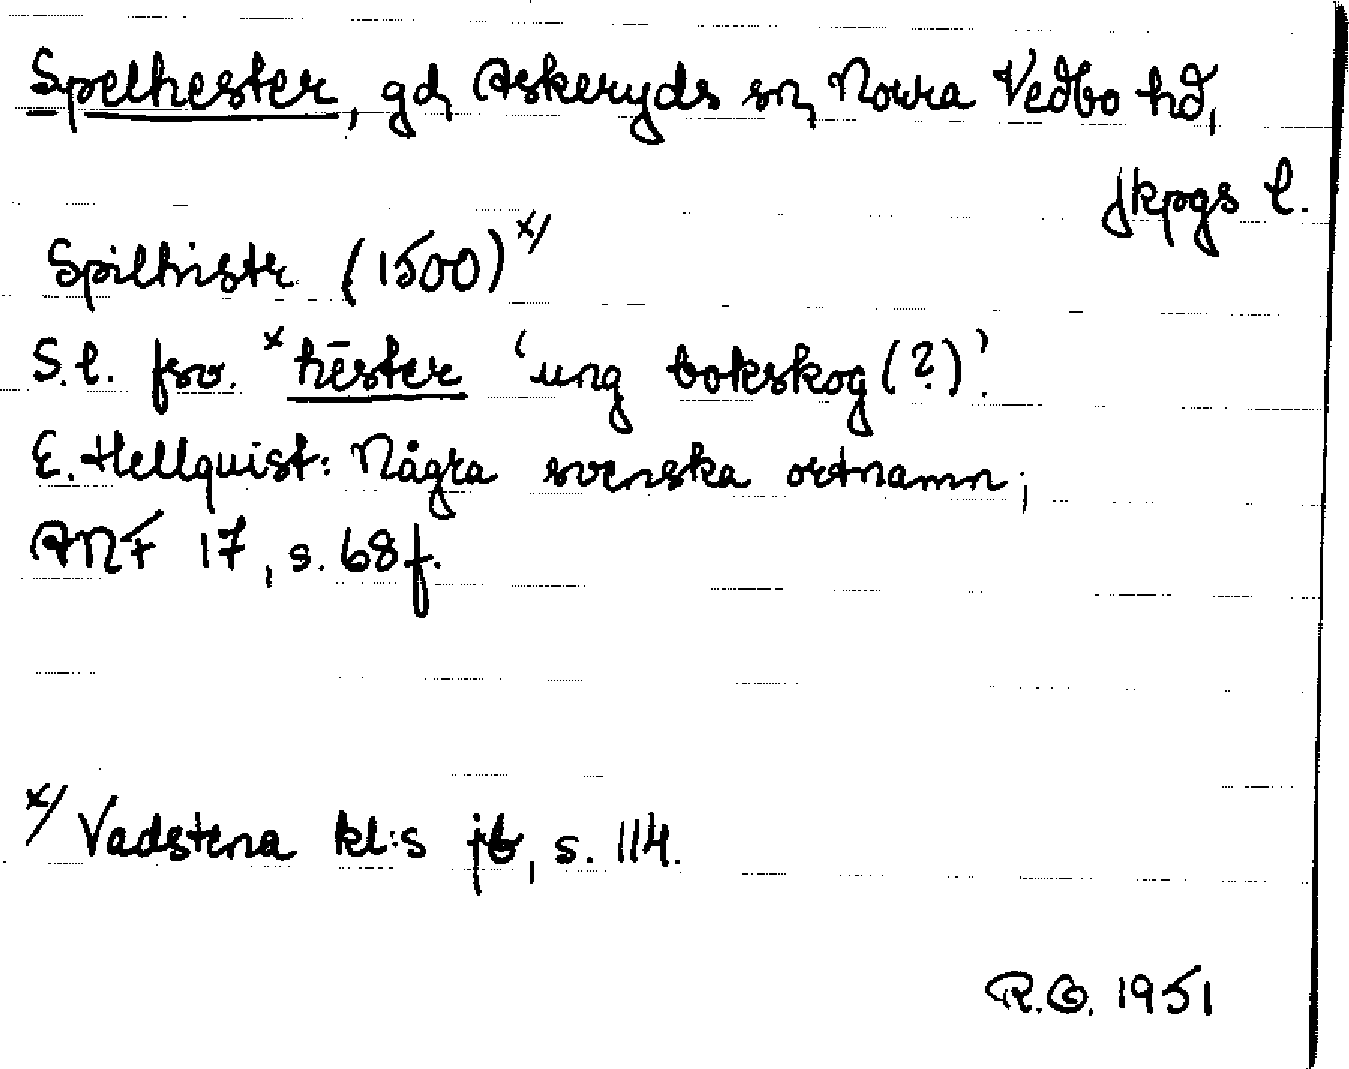 Spelhester, gd, Askeryds sn, Norra Vedbo hd,
Jkpgs l.
Spilhistr (1500) x/
S.l. fsv. x hēster 'ung bokskog (?)'.
E. Hellquist: Några svenska ortnamn;
ANF 17, s. 68 f.
x/ Vadstena kl:s jb, s. 114.
R.O. 1951